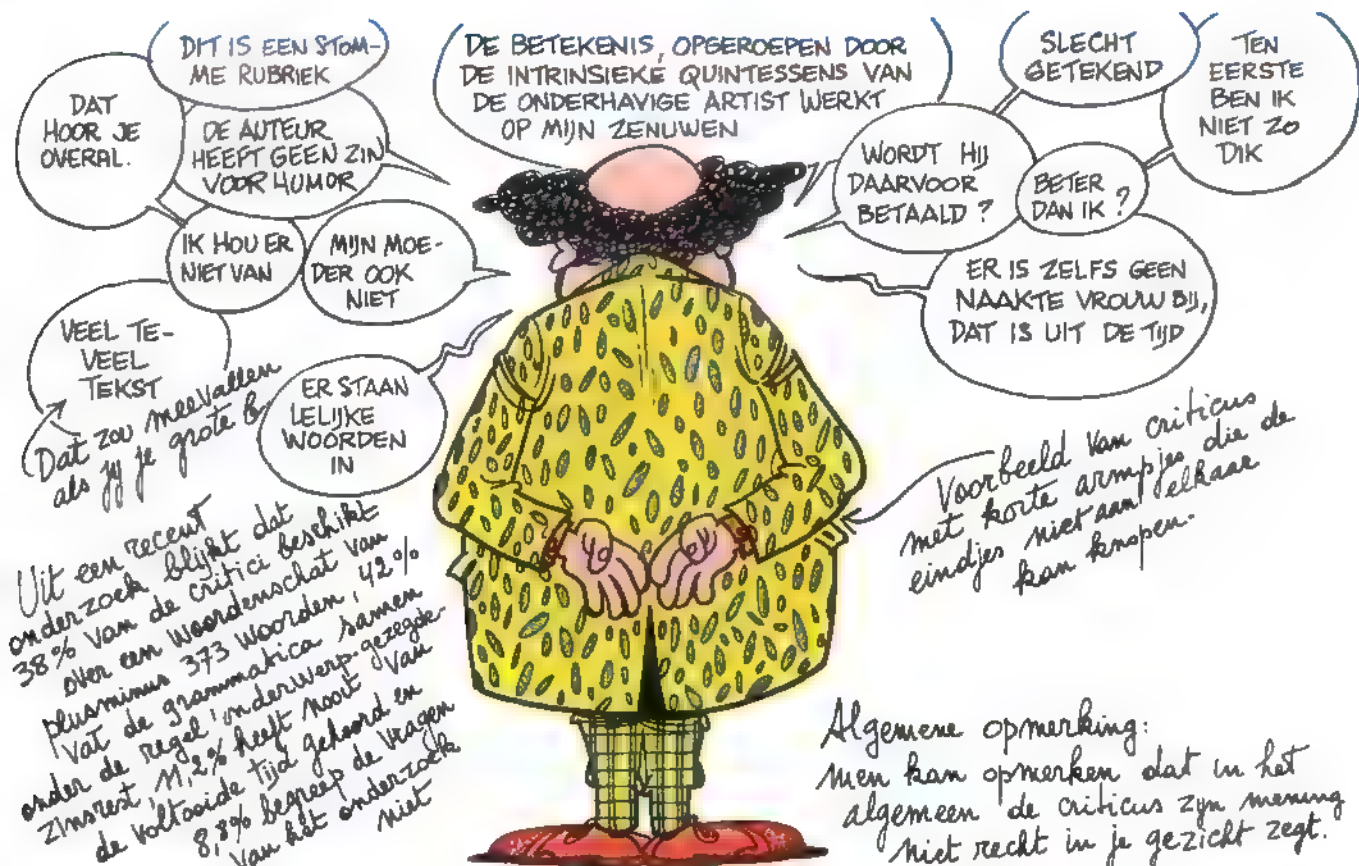 DIT IS EEN STOM-
ME RUBRIEK
DAT
HOOR JE
OVERAL.
DE AUTEUR
HEEFT GEEN ZIN
VOOR HUMOR
IK HOU ER
NIET VAN
MIJN MOE-
DER OOK
NIET
VEEL TE-
VEEL
TEKST
Dat zou meevallen
als jij je grote b
ER STAAN
LELIJKE
WOORDEN
IN
DE BETEKENIS, OPGEROEPEN DOOR
DE INTRINSIEKE QUINTESSENS VAN
DE ONDERHAVIGE ARTIST WERKT
OP MIJN ZENUWEN
SLECHT
GETEKEND
TEN
EERSTE
BEN IK
NIET ZO
DIK
WORDT HIJ
DAARVOOR
BETAALD ?
BETER
DAN IK ?
ER IS ZELFS GEEN
NAAKTE VROUW BIJ,
DAT IS UIT DE TIJD
Voorbeeld van criticus
met korte armpjes die de
eindjes niet aan elkaar
kan knopen.
Uit een recent
onderzoek blijkt dat
38% van de critici beschikt
over een woordenschat van
plusminus 373 woorden, 42%
vat de grammatica samen
onder de regel 'onderwerp-gezegde-
zinsrest, 11,2% heeft nooit van
de voltooide tijd gehoord en
8,8% begreep de vragen
van het onderzoek
niet
Algemene opmerking:
men kan opmerken dat in het
algemeen de criticus zijn mening
niet recht in je gezicht zegt.